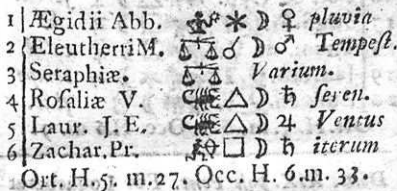 1 Ægidii Abb. ♐ ⚹ ☽ ♀ pluvia
2 Eleutherri M. ♎ ☌ ☽ ♂ Tempeſt.
3 Seraphiæ. ♎ Varium.
4 Roſaliæ V. ♏ △ ☽ ♄ ſeren.
5 Laur. J. E. ♏ △ ☽ ♃ Ventus
6 Zachar. Pr. ♐ □ ☽ ♄ iterum
Ort. H. 5. m. 27. Occ. H. 6. m. 33.